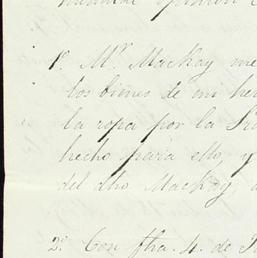 opinion
1º Mr. MacKay me
los bienes de mi her
la ropa por la
hecho para ello, y
del dho MacKay,
2º Con fha. 4. de